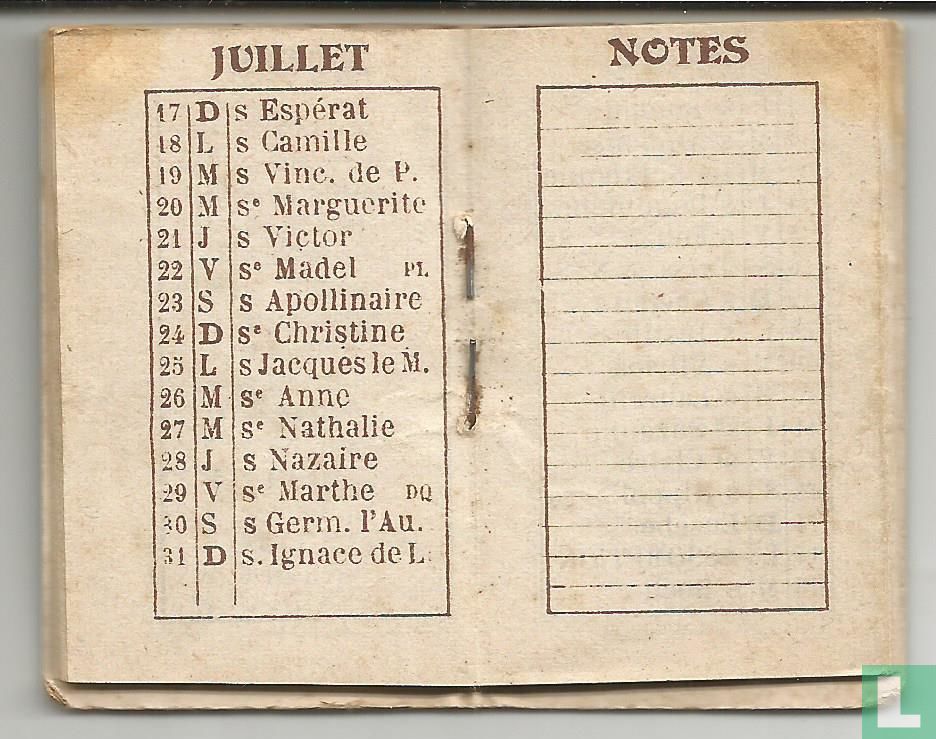 JUILLET
17 D s Espérat
18 L s Camille
19 M s Vinc. de P.
20 M sᵉ Marguerite
21 J s Victor
22 V sᵉ Madel PL
23 S s Apollinaire
24 D sᵉ Christine
25 L s Jacques le M.
26 M sᵉ Anne
27 M sᵉ Nathalie
28 J s Nazaire
29 V sᵉ Marthe DQ
30 S s Germ. l'Au.
31 D s. Ignace de L.
NOTES
L